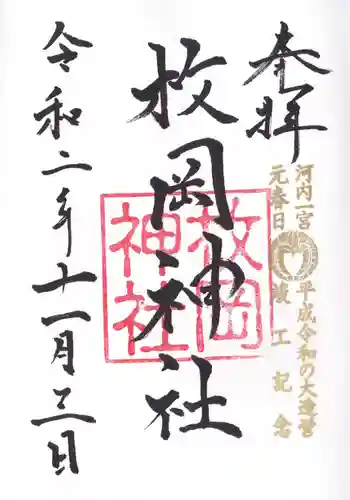 奉拝
河内一宮 平成令和の大造営
元春日 竣工記念
枚岡神社
枚岡
神社
令和二年十一月三日